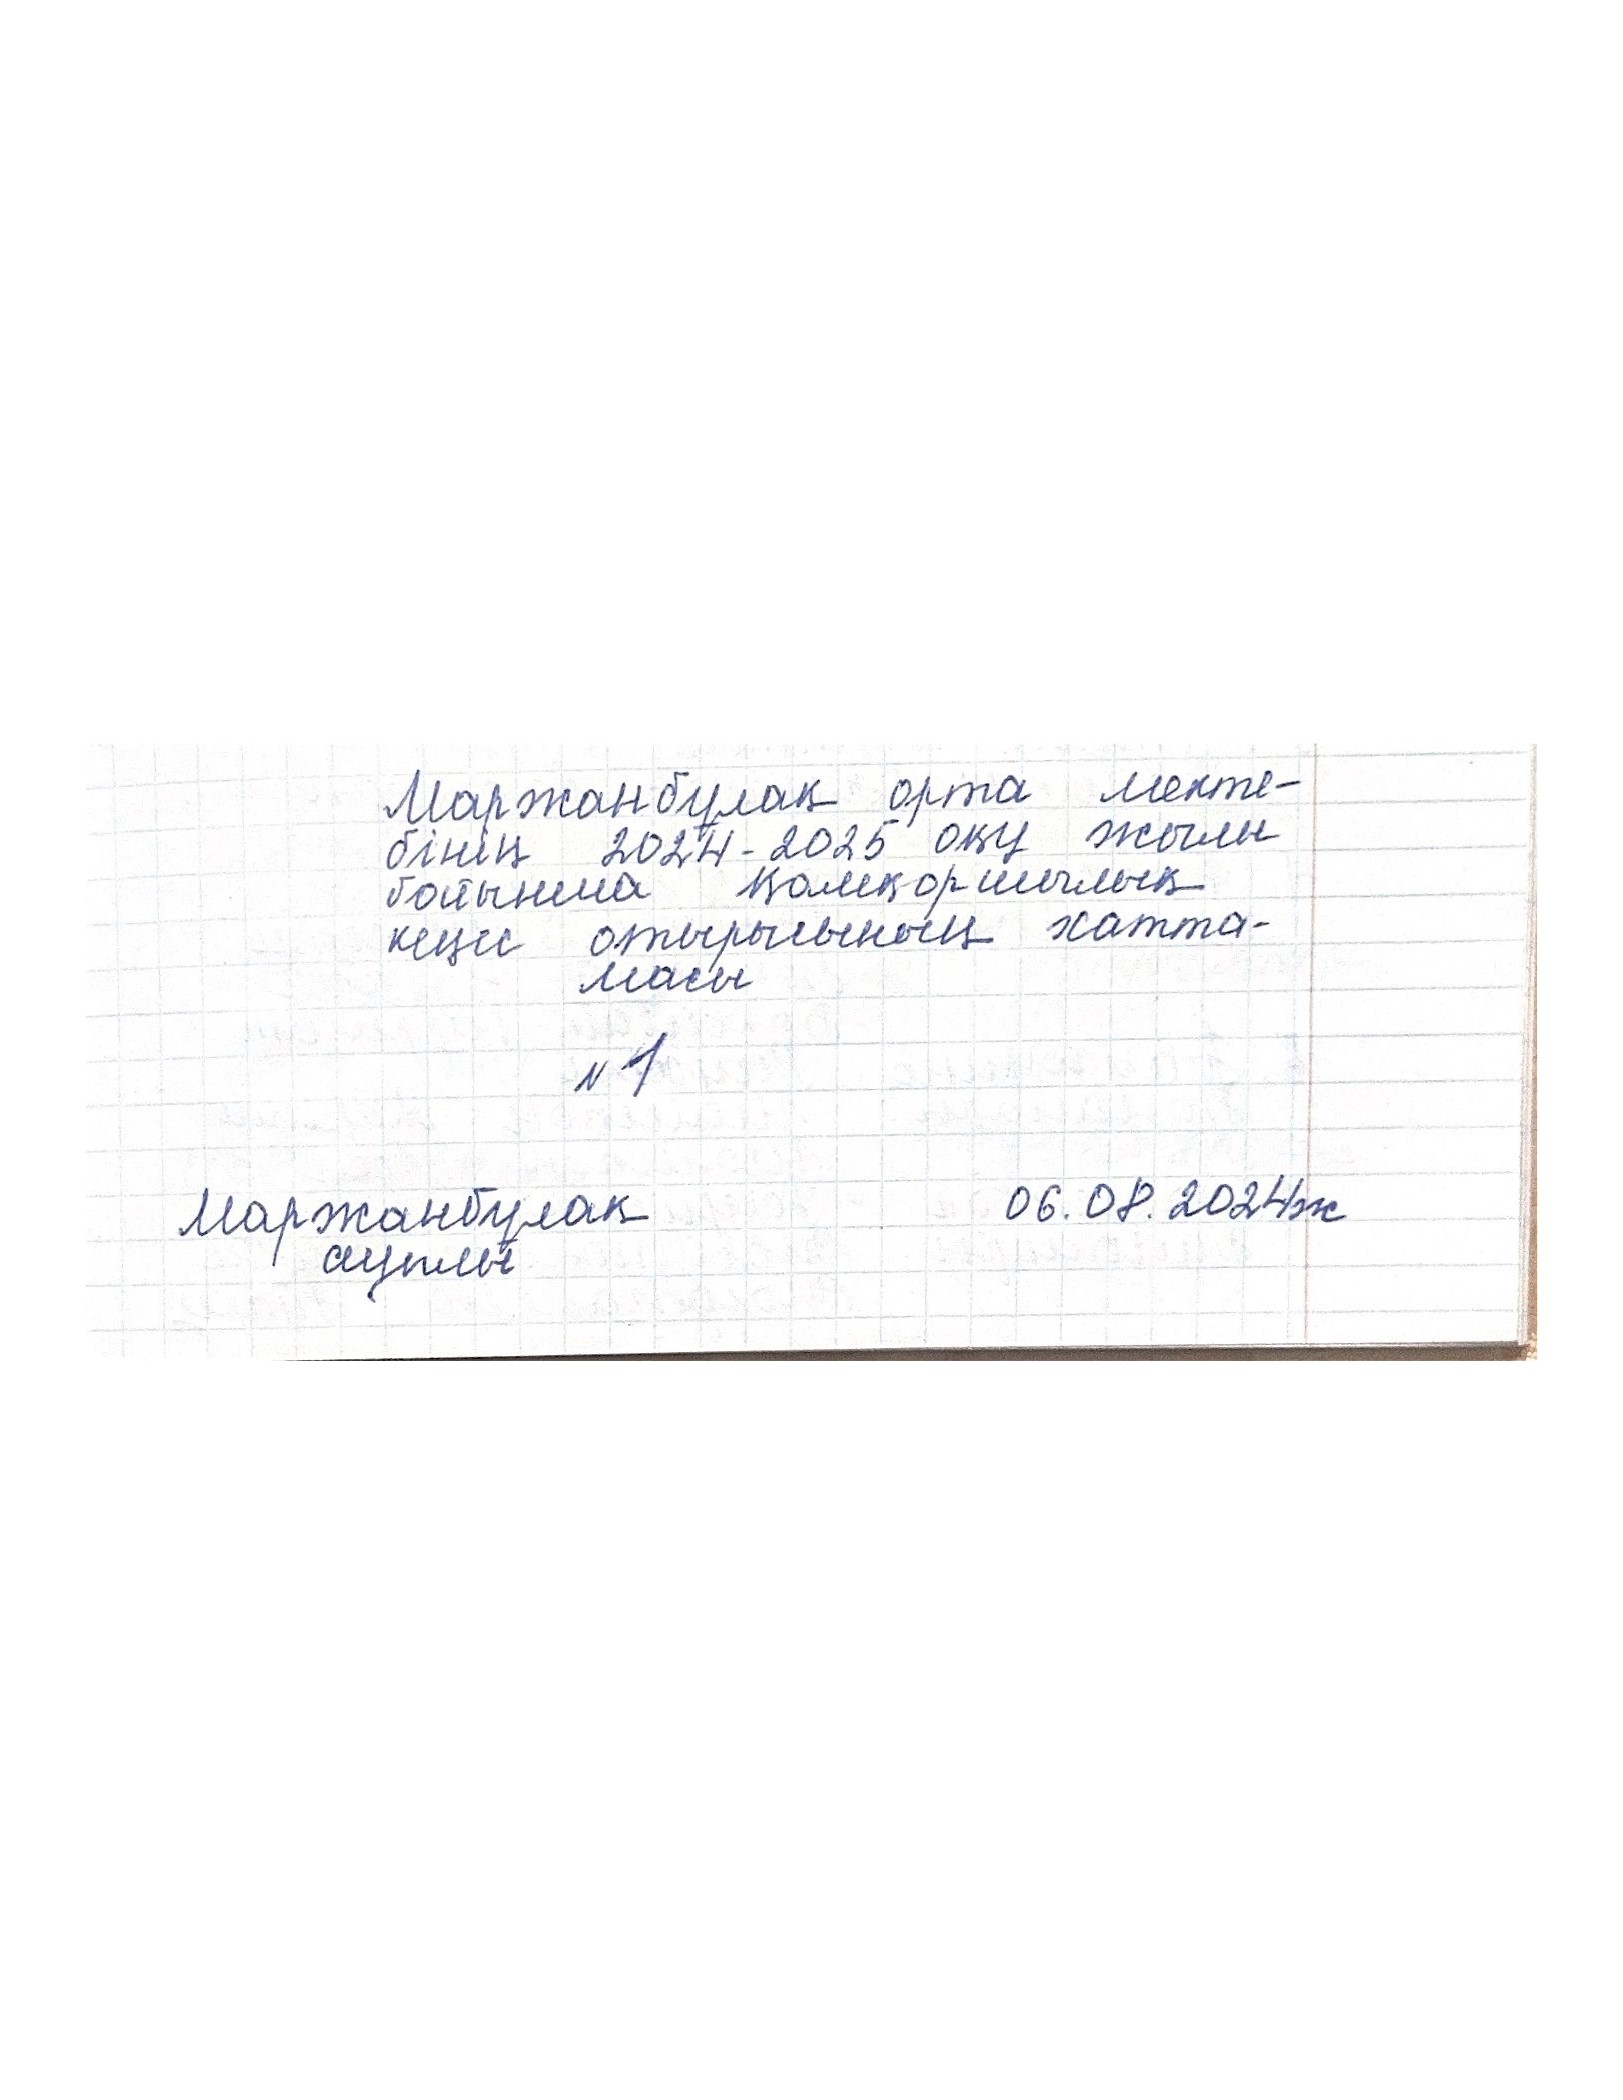 Маржанбұлақ орта мекте-
бінің 2024-2025 оқу жылы
бойынша Қамқоршылық
кеңес отырысының хатта-
масы
№1
Маржанбұлақ 06.08.2024ж
ауылы